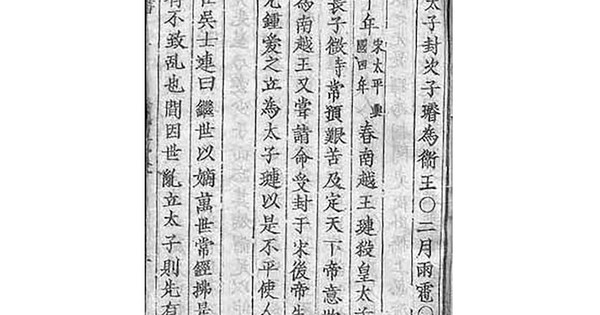 太子封次子璿為衛王〇二月雨雹〇
十年宋太平興國四年春南越王璉殺皇太
長子微時常預艱苦及定天下帝意
為南越王又嘗請命受封于宋後帝
尤鍾愛之立為太子璉以是不平使人
吳士連曰繼世以嫡萬世常經拂是
有不致亂也間因世亂立太子則先有